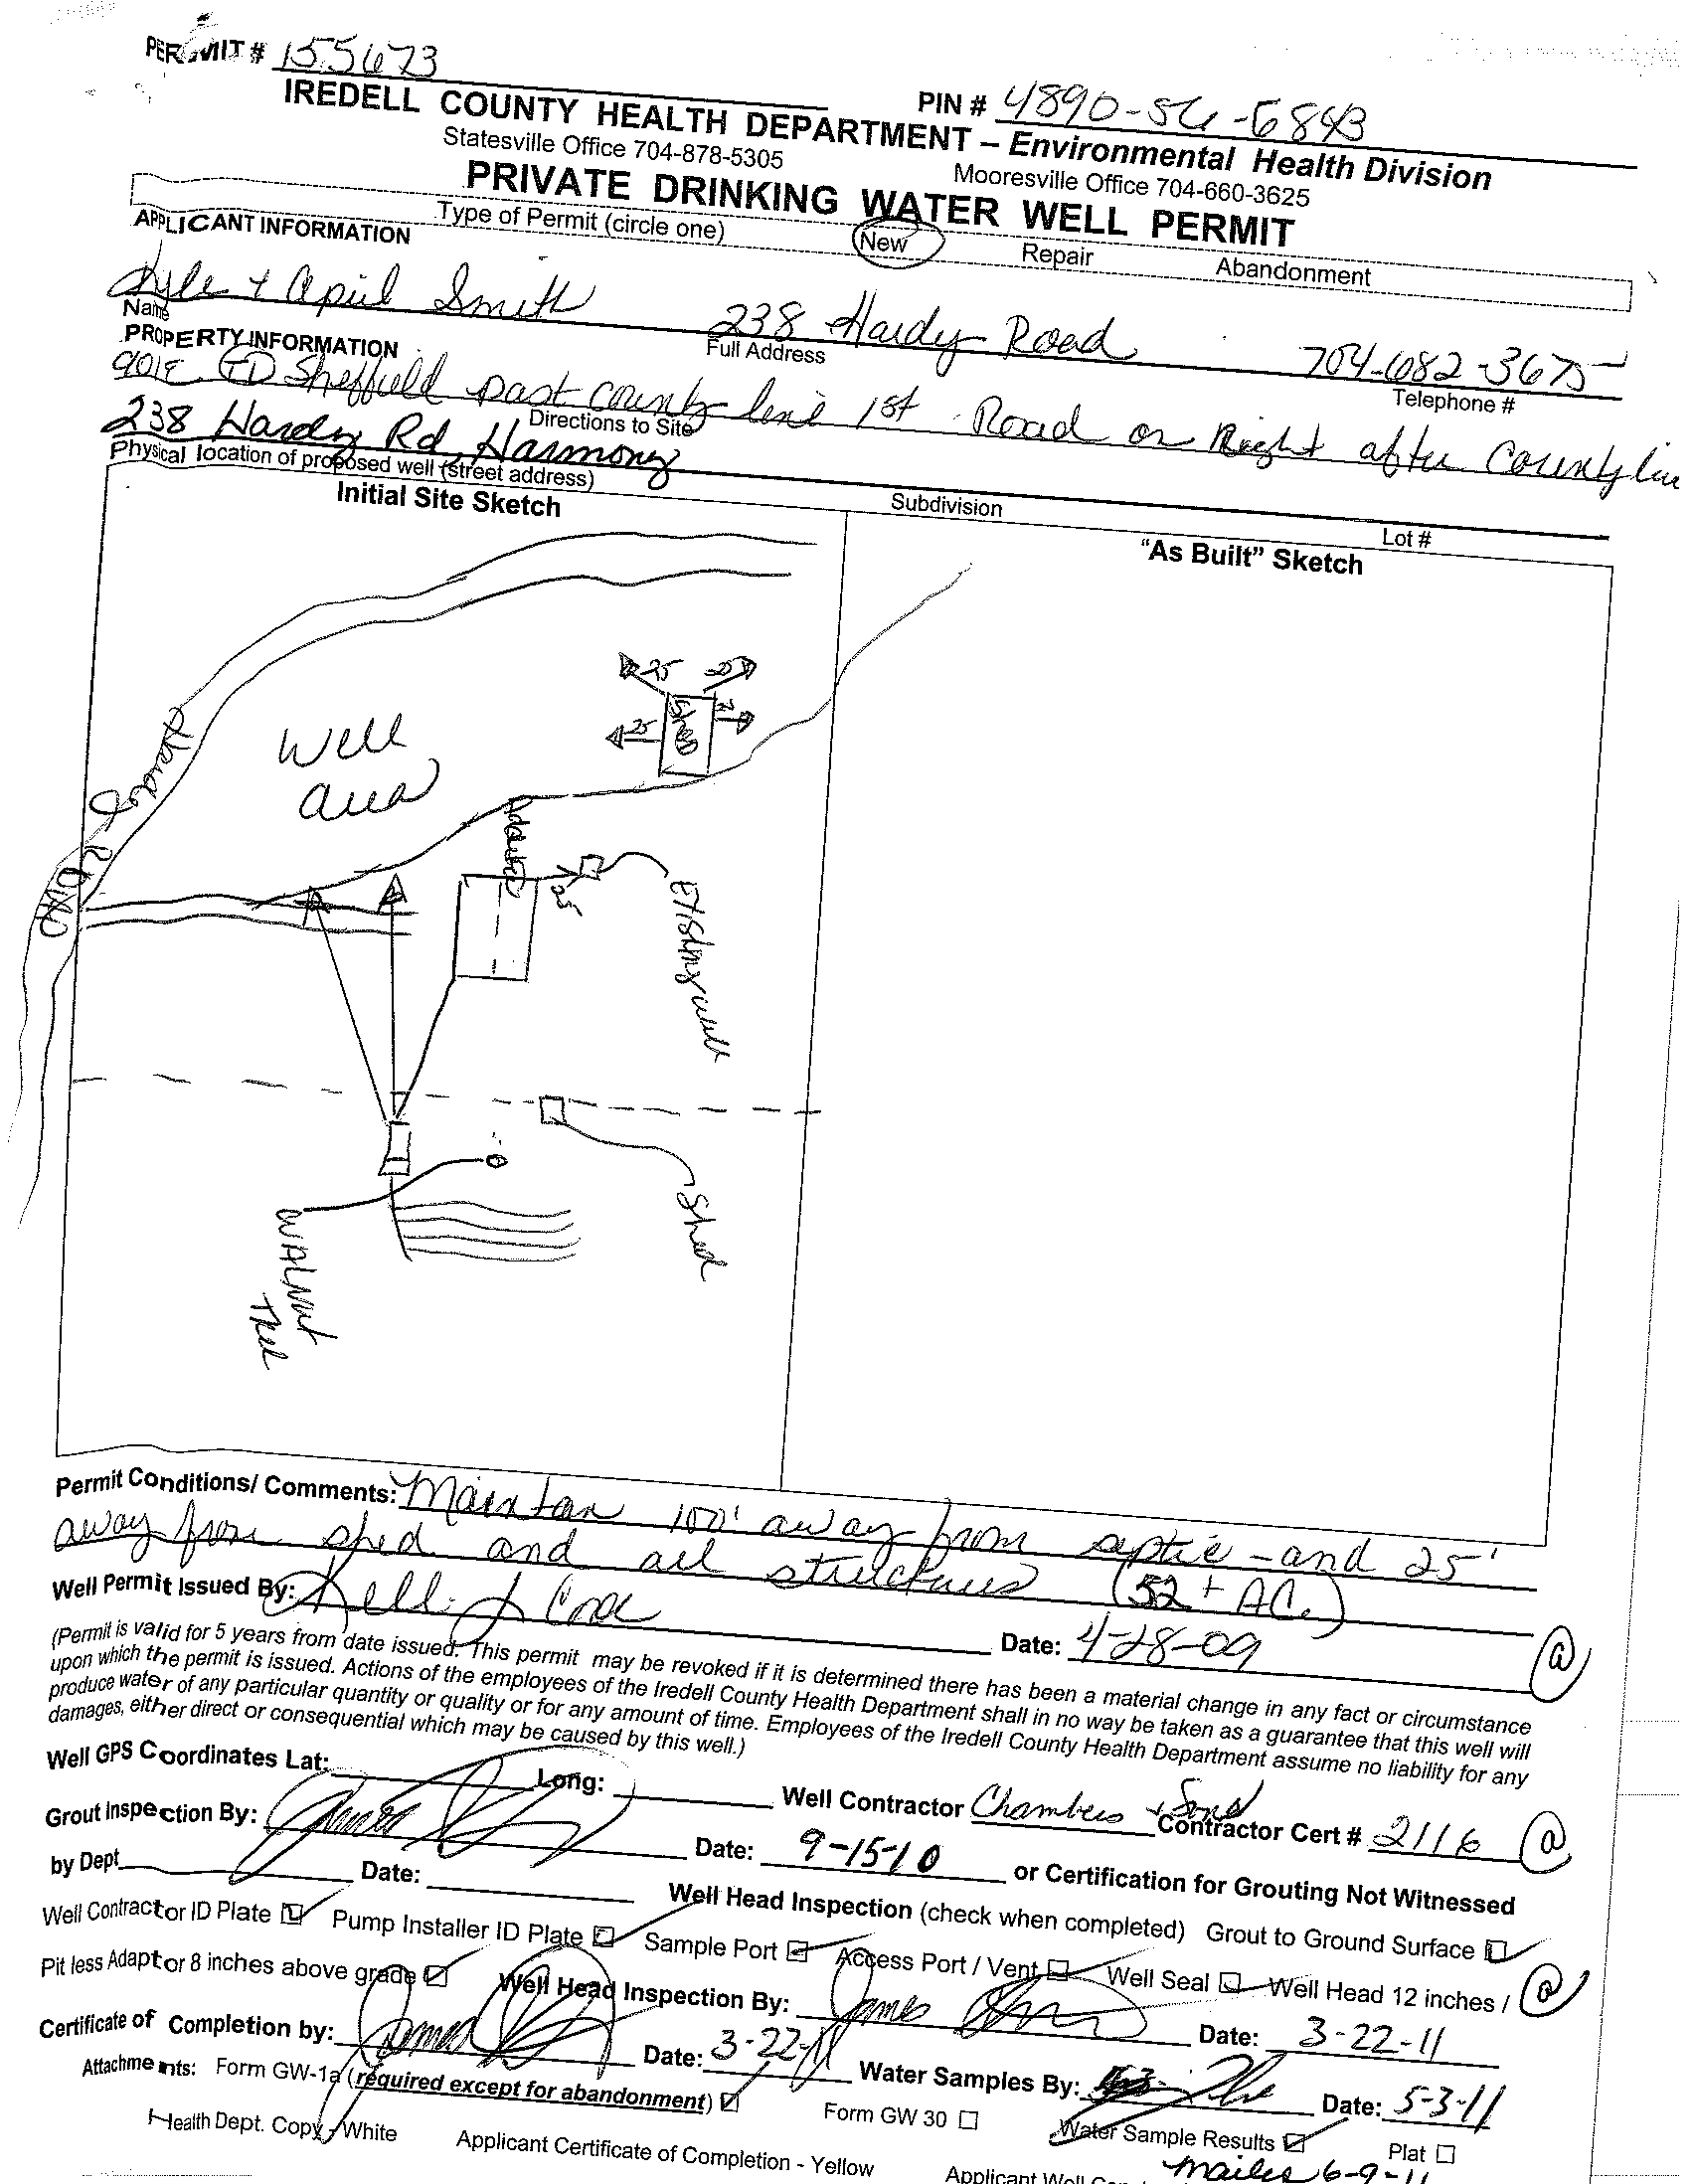 PERMIT # 155673
PIN # 4890-56-6843
IREDELL COUNTY HEALTH DEPARTMENT – Environmental Health Division
Statesville Office 704-878-5305 Mooresville Office 704-660-3625
PRIVATE DRINKING WATER WELL PERMIT
Type of Permit (circle one) New Repair Abandonment
APPLICANT INFORMATION
Kyle + April Smith 238 Hardy Road 704-682-3675
Name Full Address Telephone #
PROPERTY INFORMATION
901E Sheffield past county line 1st Road on Right after County line
Directions to Site
238 Hardy Rd, Harmony
Physical location of proposed well (street address) Subdivision Lot #
Initial Site Sketch
"As Built" Sketch
25 25
Shed
25
Well
area
ROAD
25
Existing well
Shed
WALNUT
Tree
Permit Conditions/ Comments: Maintan 100' away from septic - and 25'
away from shed and all structures (52 + AC.)
Well Permit Issued By: Date: 4-28-09
(Permit is valid for 5 years from date issued. This permit may be revoked if it is determined there has been a material change in any fact or circumstance
upon which the permit is issued. Actions of the employees of the Iredell County Health Department shall in no way be taken as a guarantee that this well will
produce water of any particular quantity or quality or for any amount of time. Employees of the Iredell County Health Department assume no liability for any
damages, either direct or consequential which may be caused by this well.)
Well GPS Coordinates Lat: Long: Well Contractor Chambers + Sons Contractor Cert # 2116
Grout Inspection By: James Date: 9-15-10 or Certification for Grouting Not Witnessed
by Dept. Date:
Well Head Inspection (check when completed) Grout to Ground Surface
Well Contractor ID Plate Pump Installer ID Plate Sample Port Access Port / Vent Well Seal Well Head 12 inches /
Pit less Adaptor 8 inches above grade Well Head Inspection By: James Date: 3-22-11
Certificate of Completion by: James Date: 3-22-11 Water Samples By: Date: 5-3-11
Attachments: Form GW-1a (required except for abandonment) Form GW 30 Water Sample Results Plat
mailed 6-9-11
Health Dept. Copy - White Applicant Certificate of Completion - Yellow Applicant Well